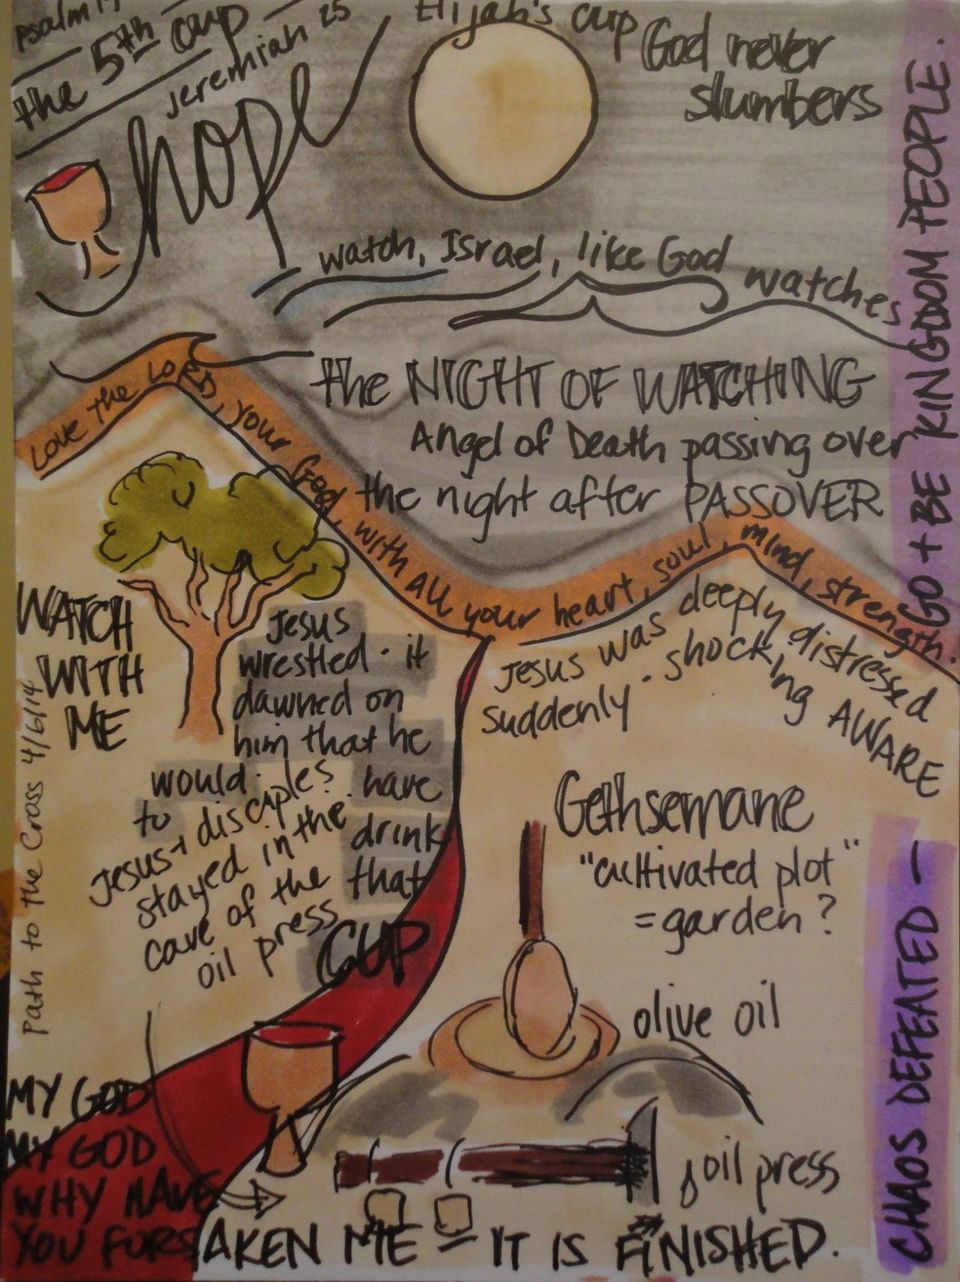 Psalm
the 5th cup
Jeremiah 25
Elijah's cup
hope
God never
slumbers
watch, Israel, like God watches
the NIGHT OF WATCHING
Angel of Death passing over
the night after PASSOVER
Love the LORD, your God, with all your heart, soul, mind, strength.
GO + BE KINGDOM PEOPLE.
CHAOS DEFEATED —
WATCH
WITH
ME
Jesus
wrestled. it
dawned on
him that he
would have
to drink
that
CUP
Jesus + disciples
stayed in the
cave of the
oil press
Jesus was deeply distressed
suddenly. shocking AWARE
Gethsemane
"cultivated plot"
= garden?
olive oil
oil press
Path to the Cross 4/6/14
MY GOD
MY GOD
WHY HAVE
YOU FORSAKEN ME — IT IS FINISHED.